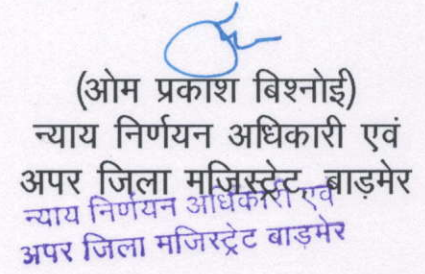 (ओम प्रकाश बिश्नोई)
न्याय निर्णयन अधिकारी एवं
अपर जिला मजिस्ट्रेट, बाड़मेर
न्याय निर्णयन अधिकारी एवं
अपर जिला मजिस्ट्रेट बाड़मेर